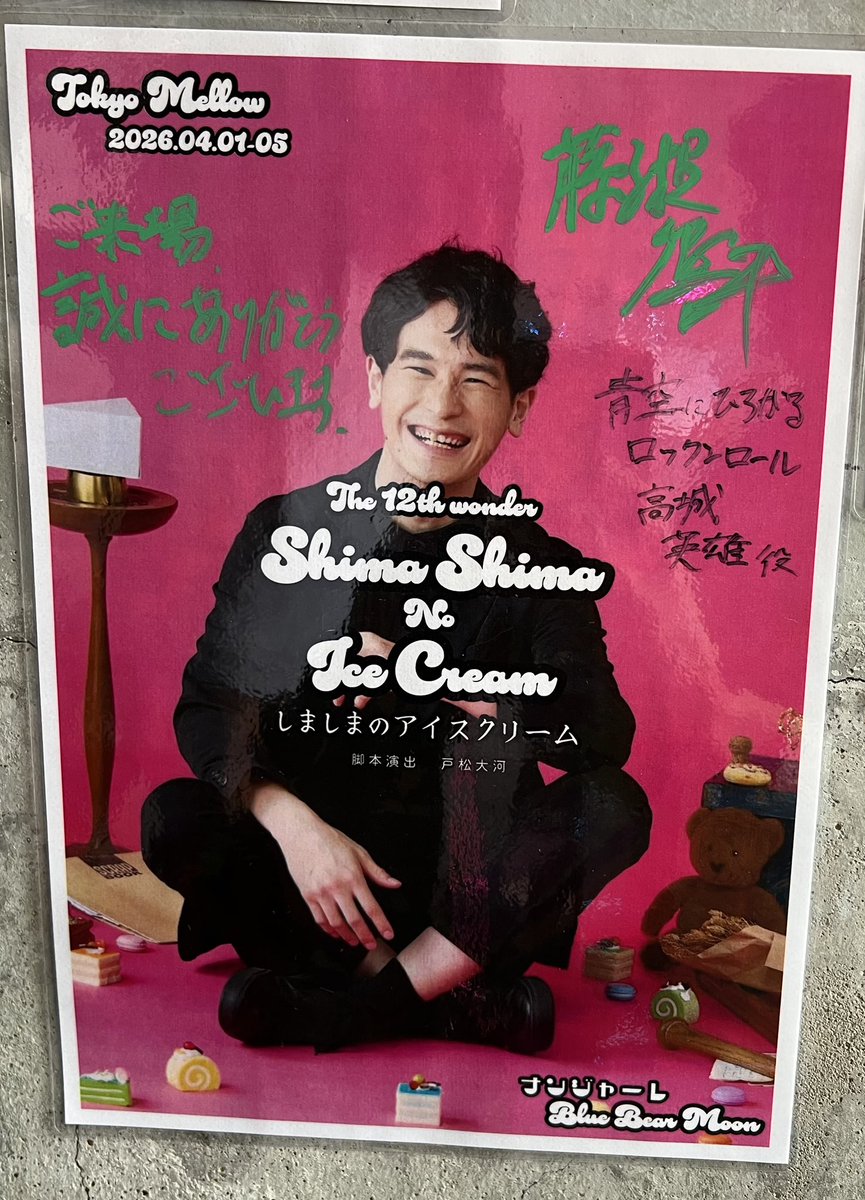 Tokyo Mellow
2026.04.01-05
ご来場、
誠にありがとう
ございます。
青空にひろがる
ロックンロール
高城
英雄 役
The 12th wonder
Shima Shima
No
Ice Cream
しましまのアイスクリーム
脚本演出 戸松大河
ナンジャーレ
Blue Bear Moon